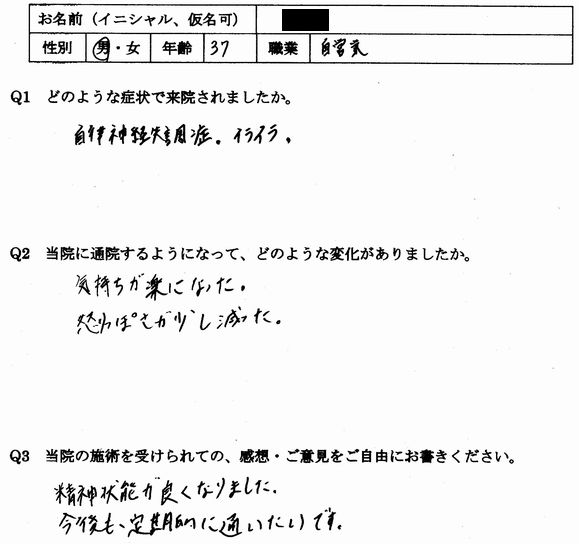 お名前（イニシャル、仮名可）
性別 男・女 年齢 37 職業 自営業
Q1 どのような症状で来院されましたか。
自律神経失調症。イライラ。
Q2 当院に通院するようになって、どのような変化がありましたか。
気持ちが楽になった。
怒りっぽさが少し減った。
Q3 当院の施術を受けられての、感想・ご意見をご自由にお書きください。
精神状態が良くなりました。
今後も、定期的に通いたいです。